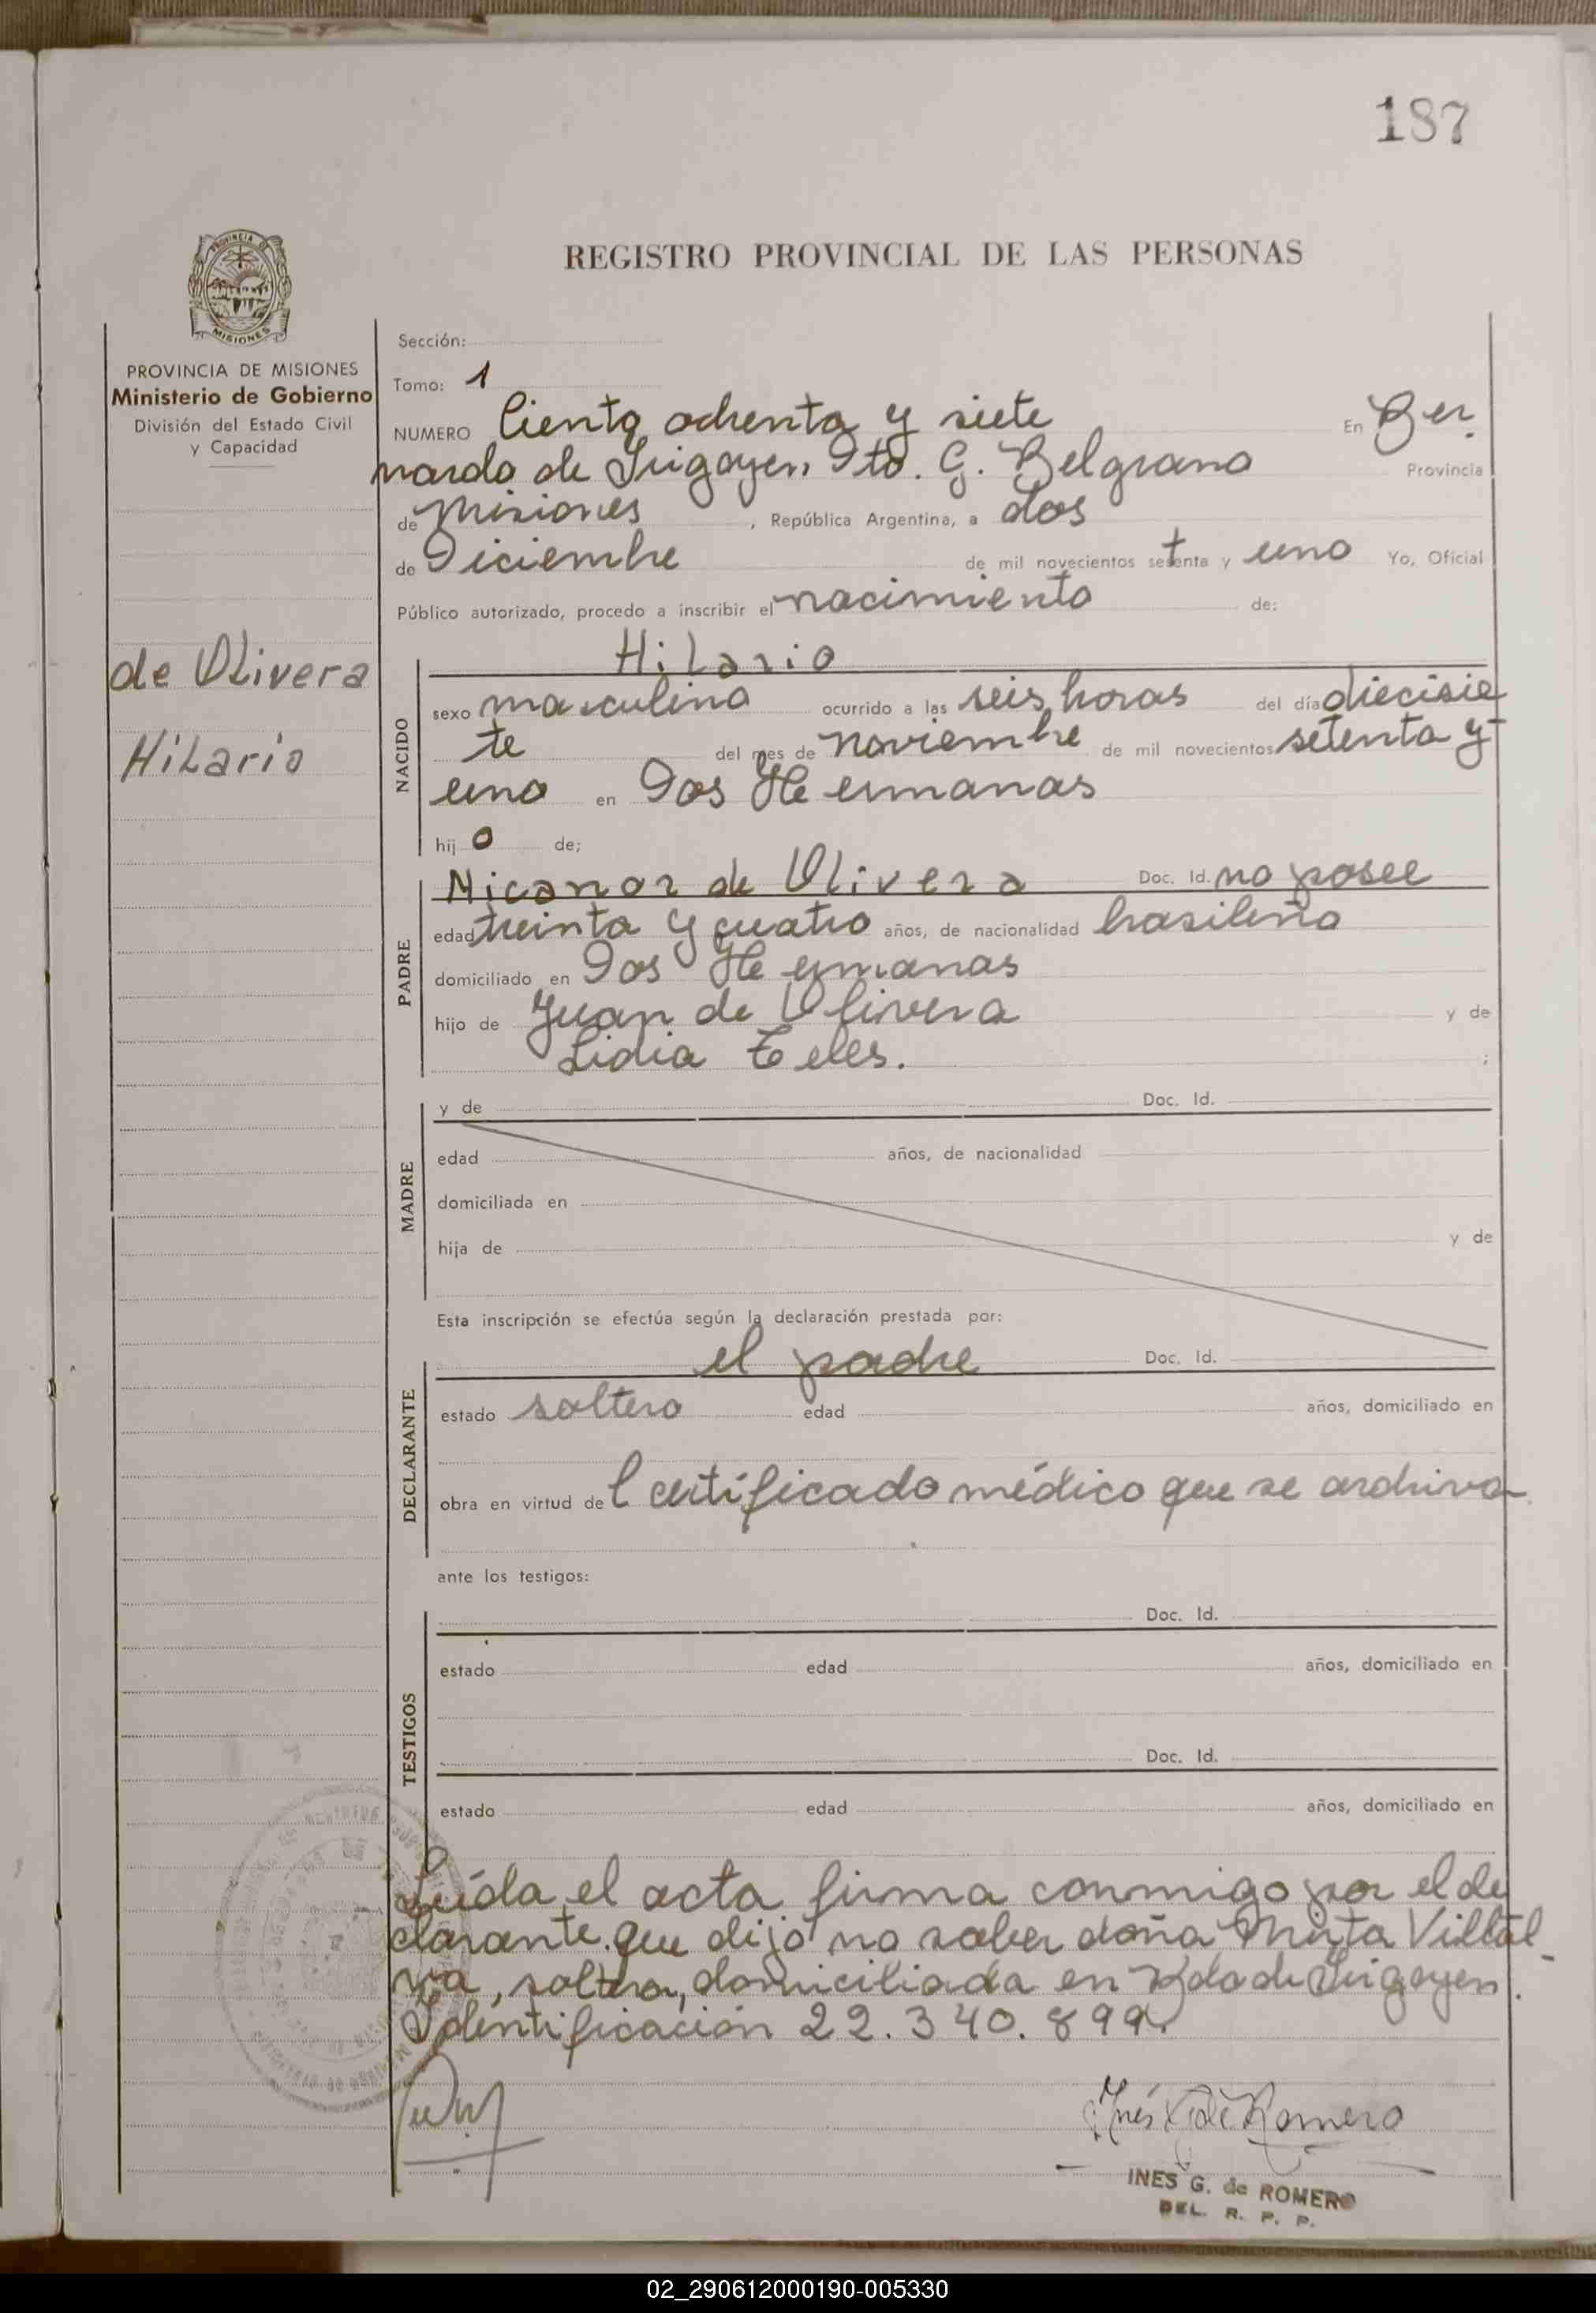 187
REGISTRO PROVINCIAL DE LAS PERSONAS
PROVINCIA DE
MISIONES
PROVINCIA DE MISIONES
Ministerio de Gobierno
División del Estado Civil
y Capacidad
de Olivera
Hilario
Sección:
Tomo: 1
NUMERO Ciento ochenta y siete En Ber
nardo de Irigoyen Dto. G. Belgrano Provincia
de Misiones, República Argentina, a dos
de Diciembre de mil novecientos setenta y uno Yo, Oficial
Público autorizado, procedo a inscribir el nacimiento de:
Hilario
NACIDO
sexo masculino ocurrido a las seis horas del día diecisie
te del mes de noviembre de mil novecientos setenta y
uno en Dos Hermanas
hij o de;
PADRE
Nicanor de Olivera Doc. Id. no posee
edad treinta y cuatro años, de nacionalidad brasileña
domiciliado en Dos Hermanas
hijo de Juan de Olivera y de
Lidia Teles. ;
MADRE
y de Doc. Id.
edad años, de nacionalidad
domiciliada en
hija de y de
Esta inscripción se efectúa según la declaración prestada por:
DECLARANTE
el padre Doc. Id.
estado soltero edad años, domiciliado en
obra en virtud de l certificado médico que se archiva
ante los testigos:
TESTIGOS
Doc. Id.
estado edad años, domiciliado en
Doc. Id.
estado edad años, domiciliado en
Leída el acta firma conmigo por el de
clarante que dijo no saber doña Mirta Villal
va, soltera, domiciliada en Bdo de Irigoyen.
Identificación 22.340.899.
Inés G. de Romero
INES G. de ROMERO
DEL. R. P. P.
02_290612000190-005330